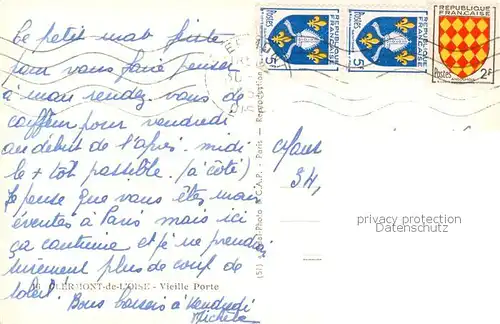 Ce petit mot juste
pour vous faire penser
à mon rendez-vous de
coiffeur pour vendredi
au début de l'après-midi
le + tôt possible. (à côté)
Je pense que vous êtes moins
éventés à Paris mais ici
ça continue et je ne prendrai
sûrement plus de coup de
soleil. Bons baisers à Vendredi
Michèle
CLERMONT-de-L'OISE - Vieille Porte
C.A.P. - Paris - Reproduction
REPUBLIQUE FRANÇAISE
POSTES
5F
REPUBLIQUE FRANÇAISE
POSTES
5F
REPUBLIQUE
FRANÇAISE
POSTES
2F
34,
privacy protection
Datenschutz